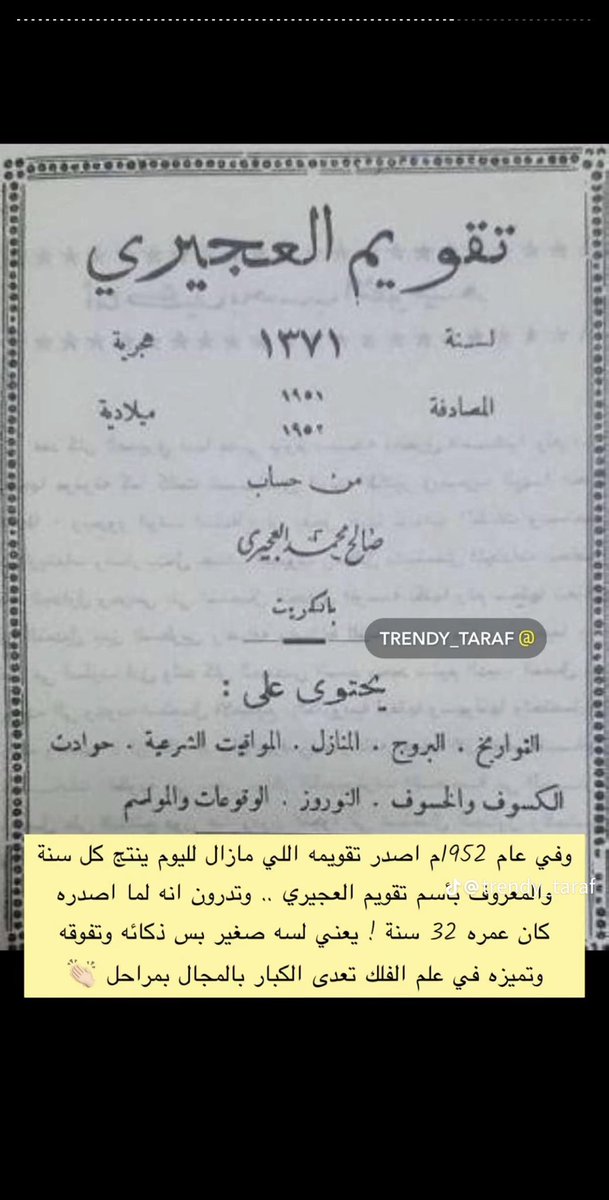 تقويم العجيري
لسنة ١٣٧١ هجرية
١٩٥١
المصادفة ميلادية
١٩٥٢
من حساب
صالح محمد العجيري
بالكويت
TRENDY_TARAF @
يحتوى على :
التواريخ . البروج . المنازل . المواقيت الشرعية . حوادث
الكسوف والخسوف . النوروز . الوقوعات والمواسم
وفي عام 1952م اصدر تقويمه اللي مازال لليوم ينتج كل سنة
والمعروف بأسم تقويم العجيري .. وتدرون انه لما اصدره
@trendy_taraf
كان عمره 32 سنة ! يعني لسه صغير بس ذكائه وتفوقه
وتميزه في علم الفلك تعدى الكبار بالمجال بمراحل 👏🏻